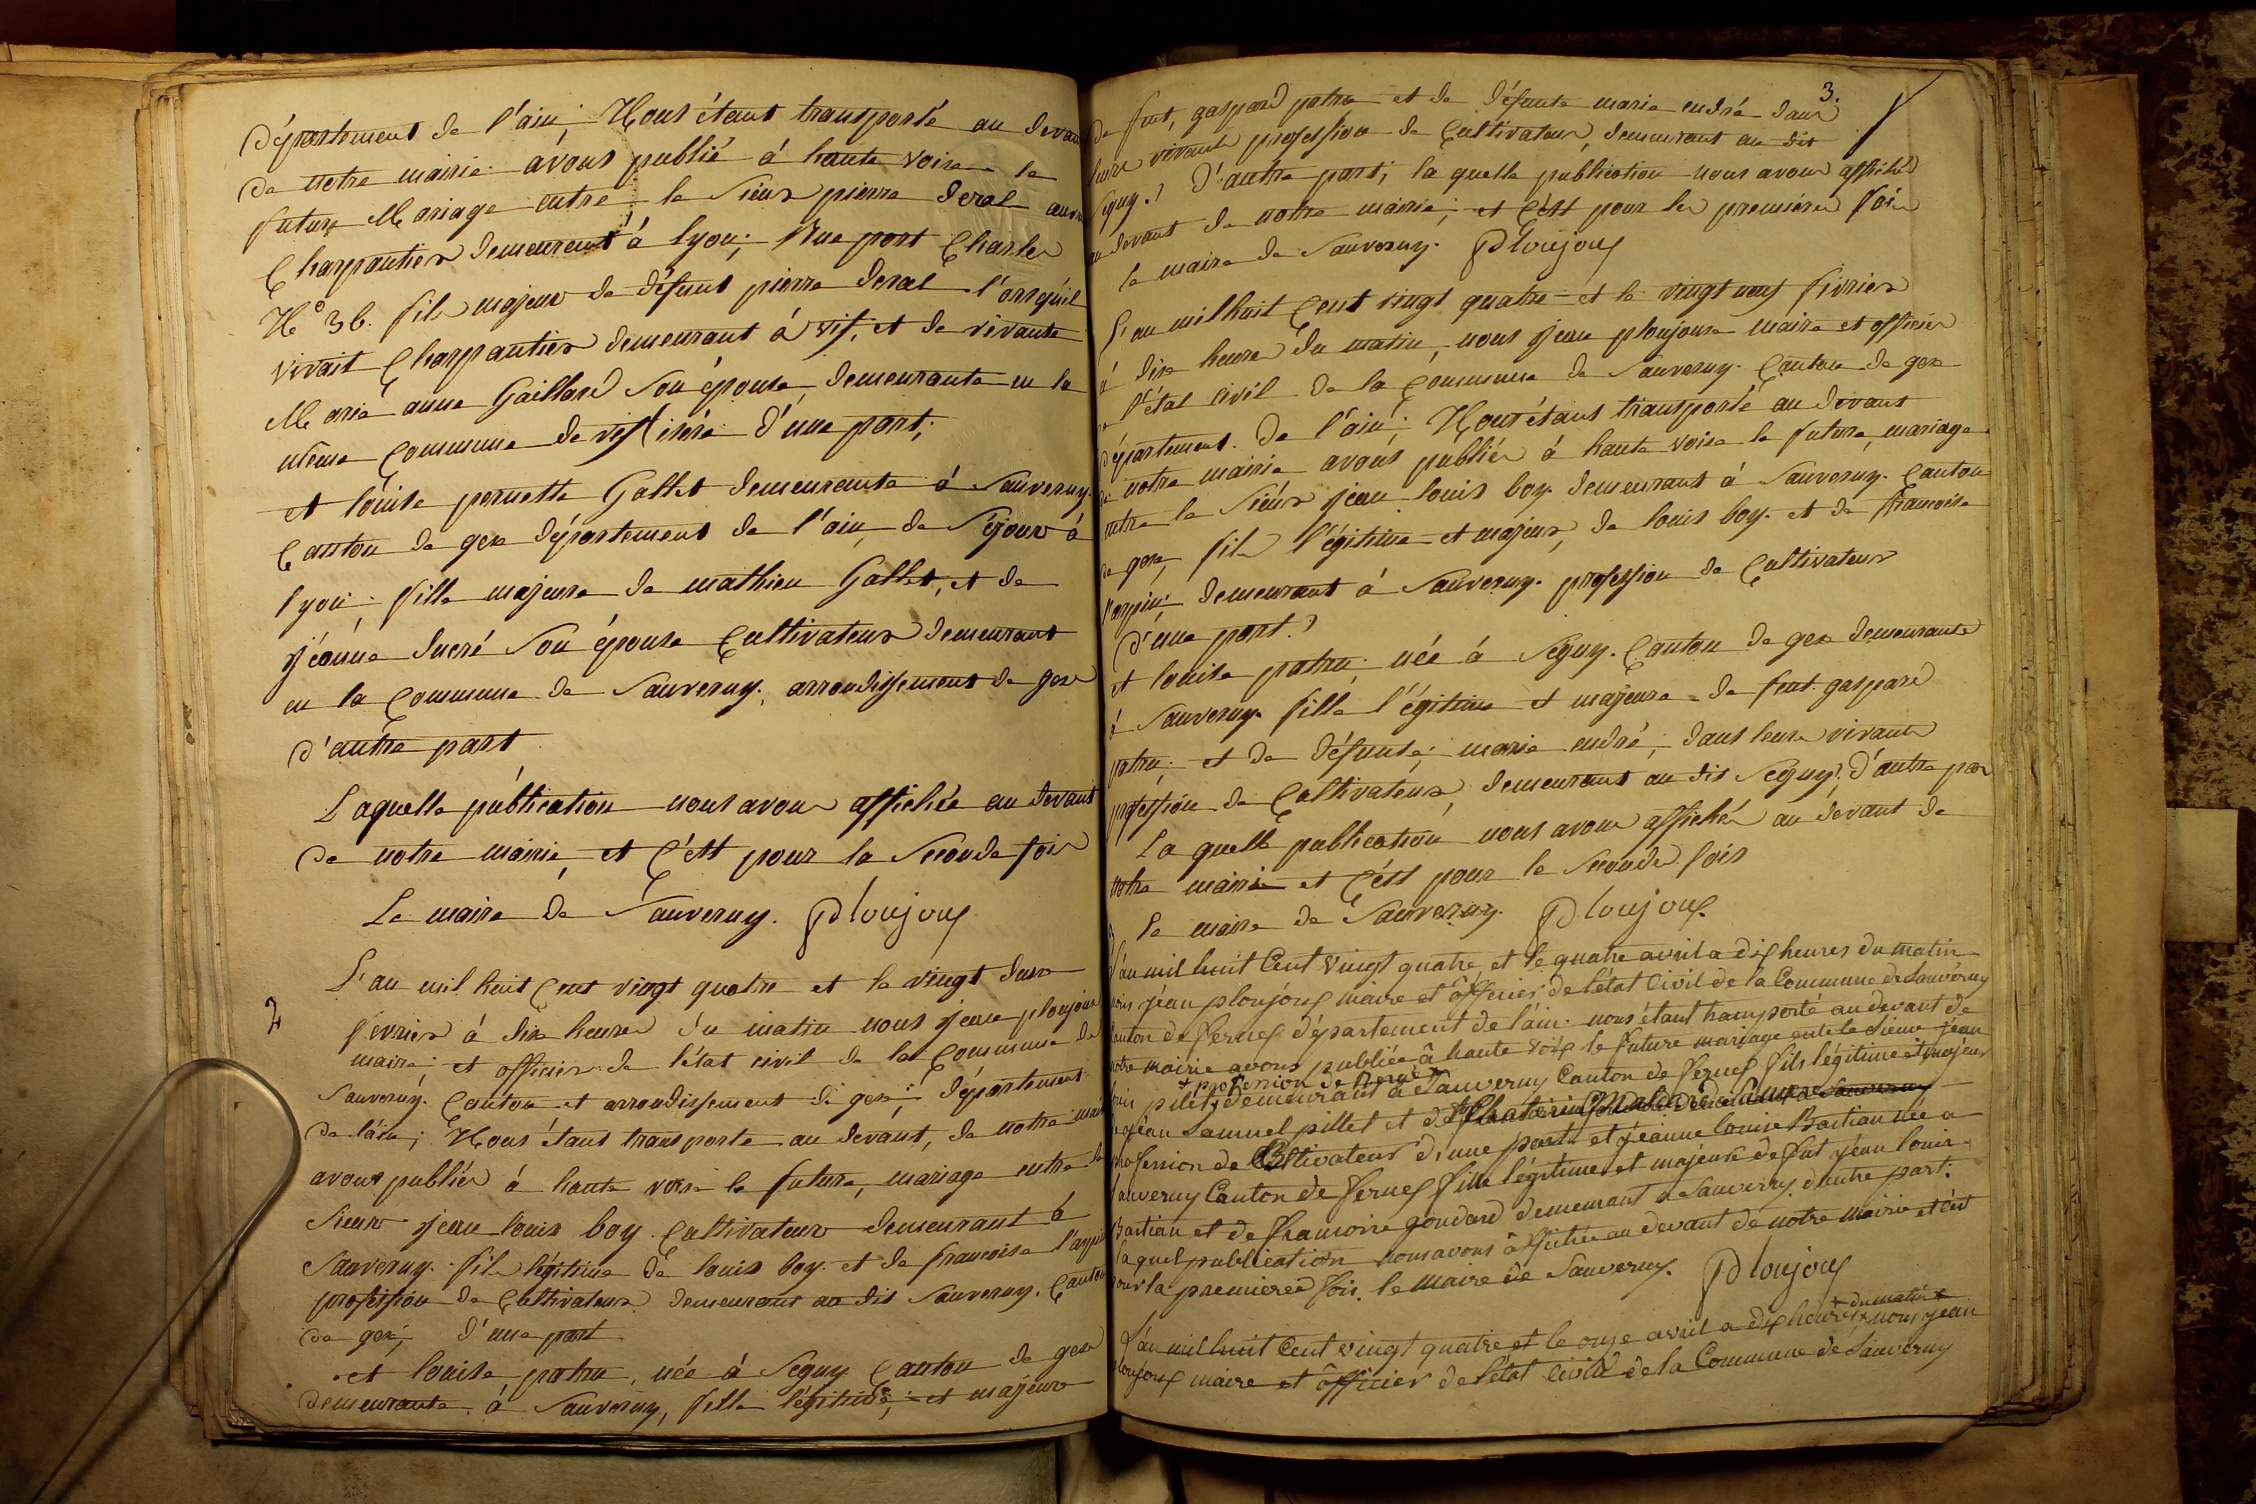 Département de l'ain; Nous étant transporté au devant
de notre mairie avons publié á haute voix le
futur Mariage entre le Sieur pierre deral
Charpantier demeurent á lyon; Rue port Charles
N° 36. fils majeur de défunt pierre deral l'orsquil
vivait Charpantier demeurant á vif; et de vivante
Marie anne Gaillard Son épouse, demeurante en la
même Commune de vif isère d'une part;
et louise pernette Gallet demeurante á Sauverny.
Canton de gex département de l'ain, de Sejour á
lyon; fille majeure de mathieu Gallet, et de
jéanne ducré Son épouse Cultivateur demeurant
en la Commune de Sauverny. arrondissement de gex
d'autre part
Laquelle publication nous avons affichée au devant
de notre mairie, et C'ést pour la Seconde fois
Le maire de Sauverny. Ploujoux
2
L'an mil huit Cent vingt quatre et le vingt deux
février á dix heures du matin nous jean ploujoux
maire; et officier de l'état civil de la Commune de
Sauverny. Canton et arrondissement de gex; département
de l'ain; Nous étant transporte au devant, de notre
avons publiér á haute voix le future, mariage entre le
Sieur jean louis boy Cultivateur demeurant á
Sauverny. fils légitime de louis boy et de francoise l'arpin
profession de Cultivateur demeurant au dit Sauverny. Canton
de gex; d'une part
et louise patru, née á Seguy Canton de gex
demeurante á Sauverny, fille légitime; et majeure
3.
de feut, gaspard patru et de défunte marie dans
leurs vivants profession de Cultivateur, demeurant au dit
Seguy. D'autre part; la quelle publication nous avons affichér
au devant de notre mairie; et C'ést pour la premiére fois
le maire de Sauverny. Ploujoux
L'an mil huit Cent vingt quatre et le vingt neuf févrièr
á dix heure du matin, nous jean ploujoux maire et officier
de l'état civil de la Commune de Sauverny. Canton de gex
département. De l'ain; Nous étant transporté au devant
de notre mairie avons publiér á haute voix le future, mariage
entre le Sieur jean louis boy demeurant á Sauverny. Canton
de gex, fils l'égitime et majeur, de louis boy et de francoise
l'arpin; demeurant á Sauverny. profession de Cultivateur
d'une part.
et louise patru, née á Seguy. Canton de gex demeurante
á Sauverny. fille l'égitime et majeure de feut gaspard
patru; et de défunte; marie; dans leurs vivants
profession de Cultivateur, demeurant au dit Seguy. d'autre part
La quelle publication nous avons affichér au devant de
notre mairie et C'ést pour la Seconde fois
le maire de Sauverny. Ploujoux.
L'an mil huit Cent vingt quatre, et le quatre avril a dix heures du matin
nous jéan ploujoux maire et officier de l'état Civil de la Commune de Sauverny
Canton de fernex département de l'ain. nous étant transporté au devant de
notre mairie avons publiée á haute voix le future mariage entre le Sieur jean
+ profession de
louis demeurant à Sauverny Canton de fernex fils légitime et majeur
de jéan Samuel pillet et de
profession de Cultivateur d'une part et jéanne louise Bastian née a
Sauverny Canton de fernex fille légitime et majeure de fut jéan louis
Bastian et de francoise goudard demeurant a Sauverny. d'autre part.
la quel publication nous avons áffichée au devant de notre mairie et c'est
pour la premiere fois. le maire de Sauverny. Ploujoux
du matin
L'an mil huit Cent vingt quatre et le onze avril a dix heures nous jean
ploujoux maire et ôfficier de l'état Civil de la Commune de Sauverny